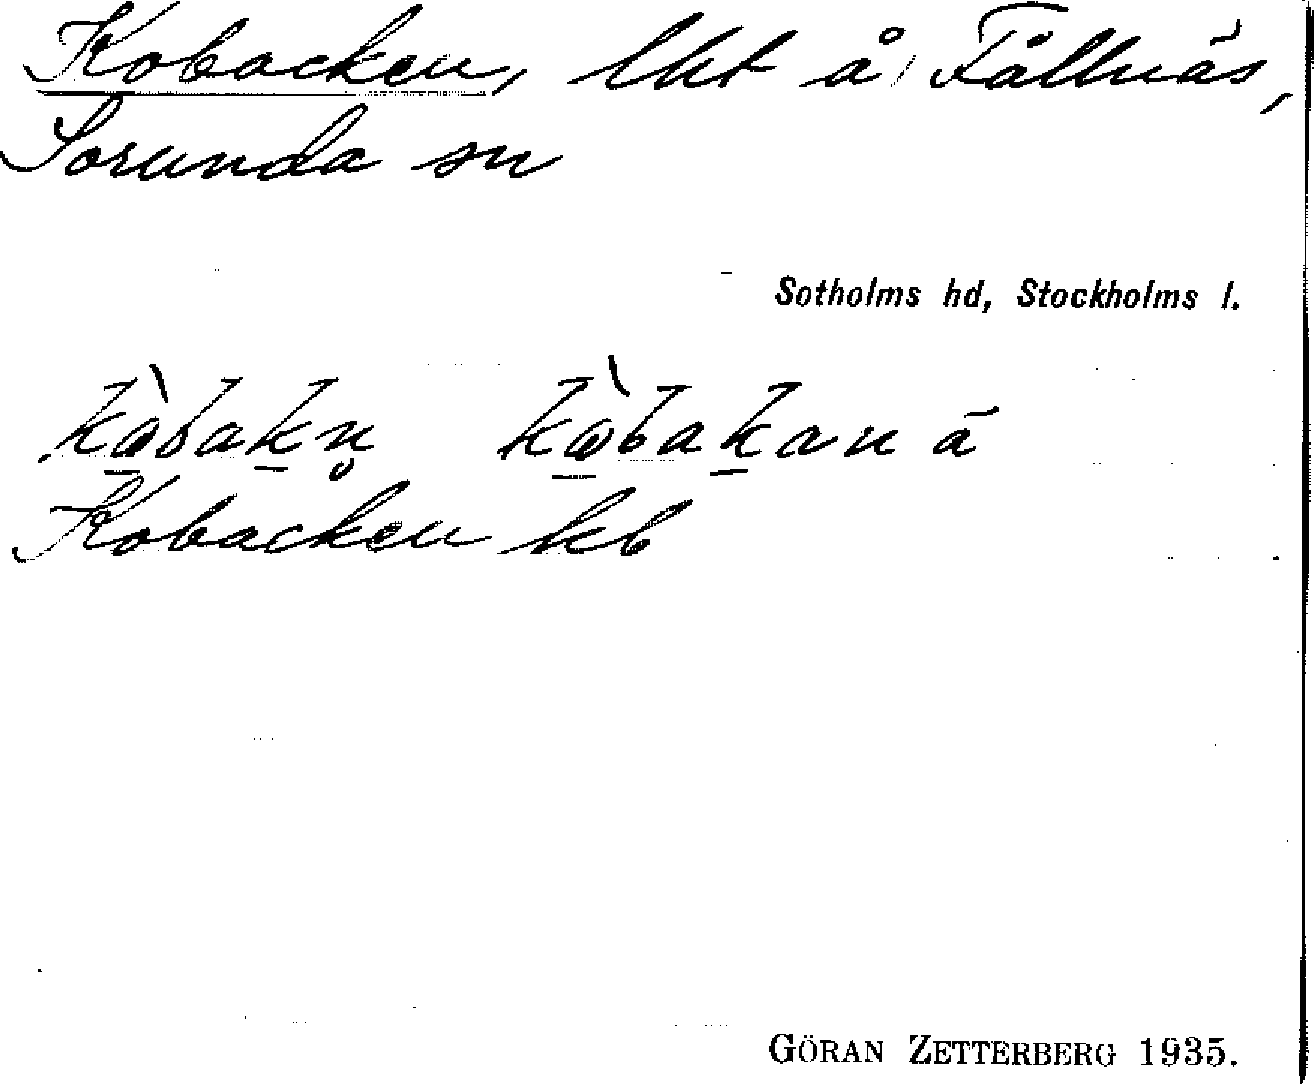 Kobacken, lht å Fållnäs,
Sorunda sn
Sotholms hd, Stockholms l.
Kobacken hb
GÖRAN ZETTERBERG 1935.